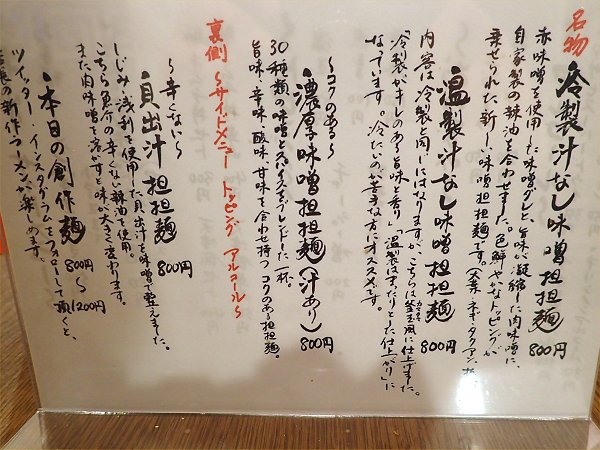 名物
冷製汁なし味噌担担麺 800円
赤味噌を使用した味噌ダレと旨味が凝縮した肉味噌に、
自家製の辣油を合わせました。色鮮やかなトッピングが
乗せられた新しい味噌担担麺です。
温製汁なし味噌担担麺 800円
内容は冷製と同じにはなりますが、こちらは釜玉風に仕上げました。
「冷製がキレのある旨味と香り」「温製はまったりとした仕上がり」に
なています。冷たいのが苦手な方にオススメです。
〜コクのある〜
濃厚味噌担担麺(汁あり) 800円
30種類の味噌とスパイスをブレンドした一杯。
旨味、辛味、酸味、甘味を合わせ持つコクのある担担麺。
裏側 〜サイドメニュー トッピング アルコール〜
〜辛くない〜
貝出汁担担麺 800円
しじみ・浅利を使用した貝出汁を味噌で整えました。
こちら専用の辛くない辣油を使用。
また肉味噌を溶かすと味が大きく変わります。
本日の創作麺 800円〜1200円
ツイッター、インスタグラムをフォローして頂くと、
店長の新作ラーメンが楽しめます。